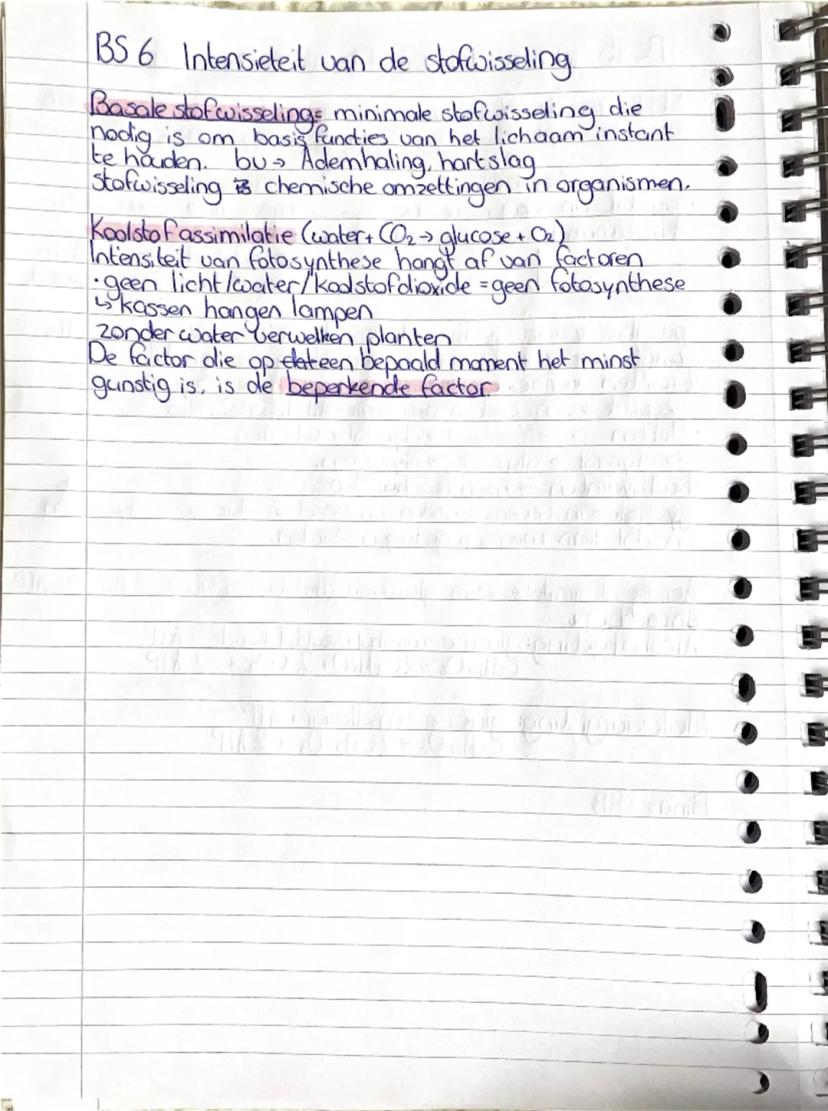 BS 6 Intensieteit van de stofwisseling
Basale stofwisseling: minimale stofwisseling die
nodig is om basis functies van het lichaam instant
te houden. bv → Ademhaling, hartslag
stofwisseling chemische omzettingen in organismen.
Koolstofassimilatie (water + CO₂ → glucose + O₂)
Intensiteit van fotosynthese hangt af van factoren
· geen licht/water/koolstofdioxide = geen fotosynthese
↳ kassen hangen lampen
zonder water verwelken planten
De factor die op een bepaald moment het minst
gunstig is, is de beperkende factor.